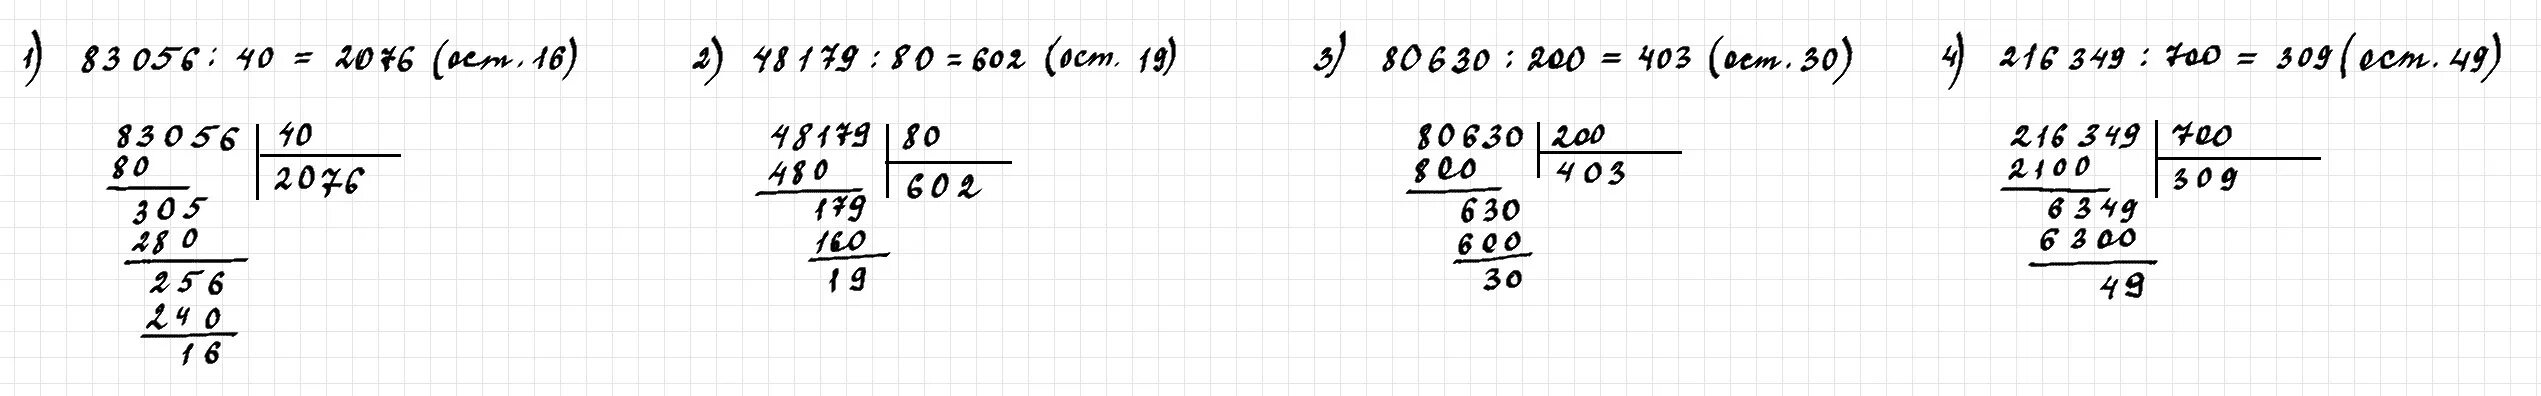 1) 83056 : 40 = 2076 (ост. 16)
83056 40
80 2076
305
280
256
240
16
2) 48179 : 80 = 602 (ост. 19)
48179 80
480 602
179
160
19
3) 80630 : 200 = 403 (ост. 30)
80630 200
800 403
630
600
30
4) 216349 : 700 = 309 (ост. 49)
216349 700
2100 309
6349
6300
49